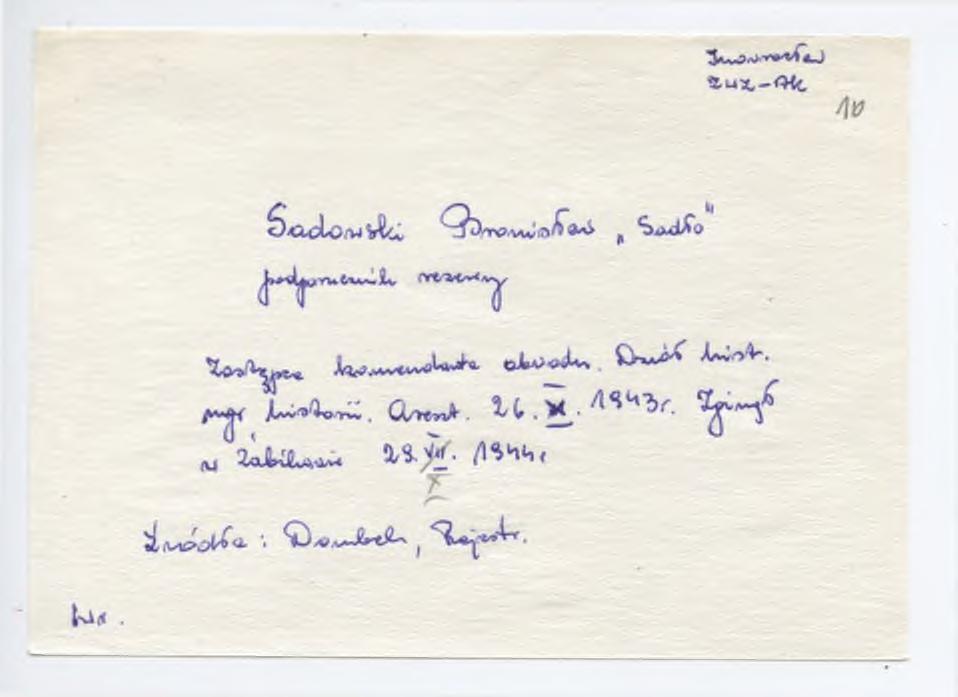 Inowrocław
ZWZ-AK
10
Sadowski Bronisław „Sadło"
podporucznik rezerwy
Zastępca komendanta obwodu. Dział hist.
mgr historii. Areszt. 26.XI.1943r. Zginął
w Żabikowie 29.VII.1944r
X
Źródła: Dombek, Rejestr.